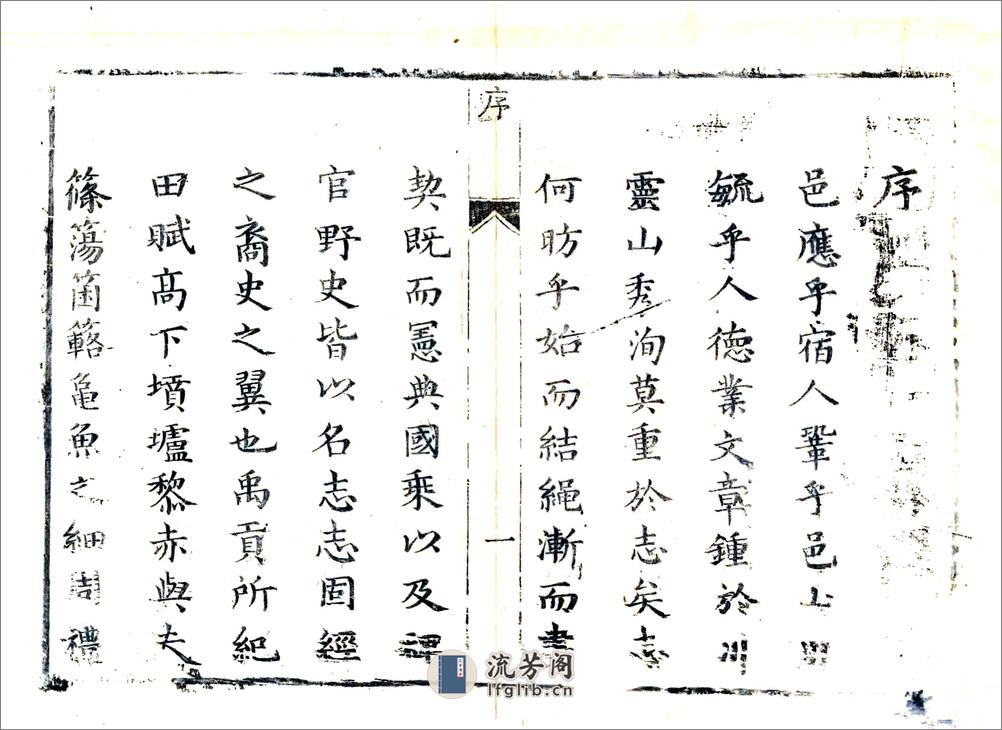 序
邑應乎宿人鞏乎邑山川
毓乎人德業文章鍾於川
靈山秀洵莫重於志矣志
何昉乎始而結繩漸而書
序
一
契既而憲典國乘以及稗
官野史皆以名志志固經
之裔史之翼也禹貢所紀
田賦高下墳壚黎赤與夫
篠簜箘簵龜魚之細周禮
流芳阁
lfglib.cn